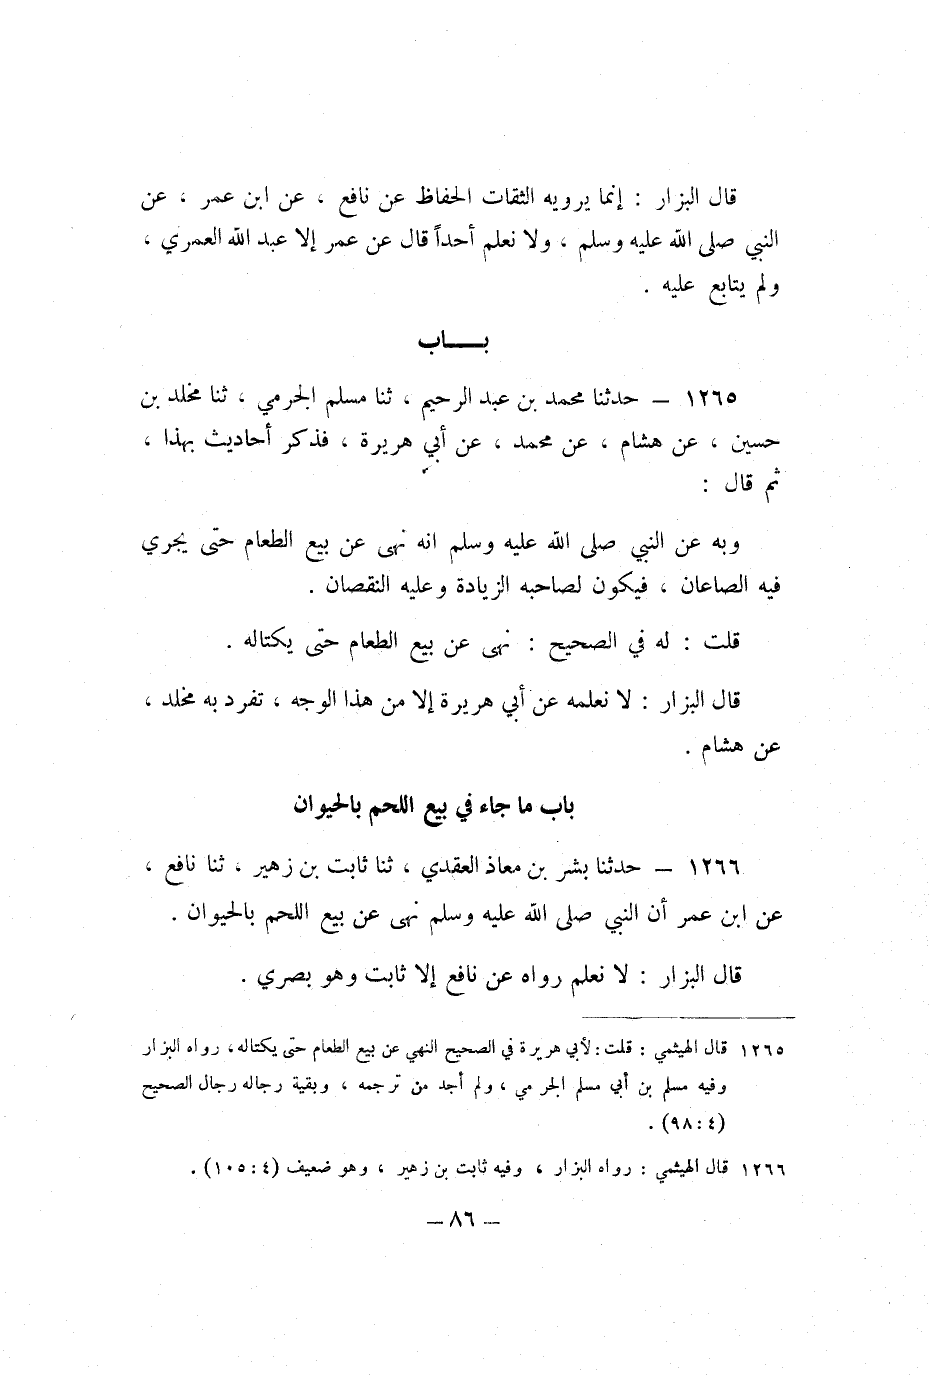 قال البزار : إنما يرويه الثقات الحفاظ عن نافع ، عن ابن عمر ، عن
النبي صلى الله عليه وسلم ، ولا نعلم أحداً قال عن عمر إلا عبد الله العمري ،
ولم يتابع عليه .
بـــــاب
١٢٦٥ – حدثنا محمد بن عبد الرحيم ، ثنا مسلم الجرمي ، ثنا مخلد بن
حسين ، عن هشام ، عن محمد ، عن أبي هريرة ، فذكر أحاديث بهذا ،
ثم قال :
وبه عن النبي صلى الله عليه وسلم انه نهى عن بيع الطعام حتى يجري
فيه الصاعان ، فيكون لصاحبه الزيادة وعليه النقصان .
قلت : له في الصحيح : نهى عن بيع الطعام حتى يكتاله .
قال البزار : لا نعلمه عن أبي هريرة إلا من هذا الوجه ، تفرد به مخلد ،
عن هشام .
باب ما جاء في بيع اللحم بالحيوان
١٢٦٦ – حدثنا بشر بن معاذ العقدي ، ثنا ثابت بن زهير ، ثنا نافع ،
عن ابن عمر أن النبي صلى الله عليه وسلم نهى عن بيع اللحم بالحيوان .
قال البزار : لا نعلم رواه عن نافع إلا ثابت وهو بصري .
١٢٦٥ قال الهيثمي : قلت : لأبي هريرة في الصحيح النهي عن بيع الطعام حتى يكتاله، رواه البزار
وفيه مسلم بن أبي مسلم الجرمي ، ولم أجد من ترجمه ، وبقية رجاله رجال الصحيح
(٤ : ٩٨) .
١٢٦٦ قال الهيثمي : رواه البزار ، وفيه ثابت بن زهير ، وهو ضعيف (٤ : ١٠٥) .
– ٨٦ –